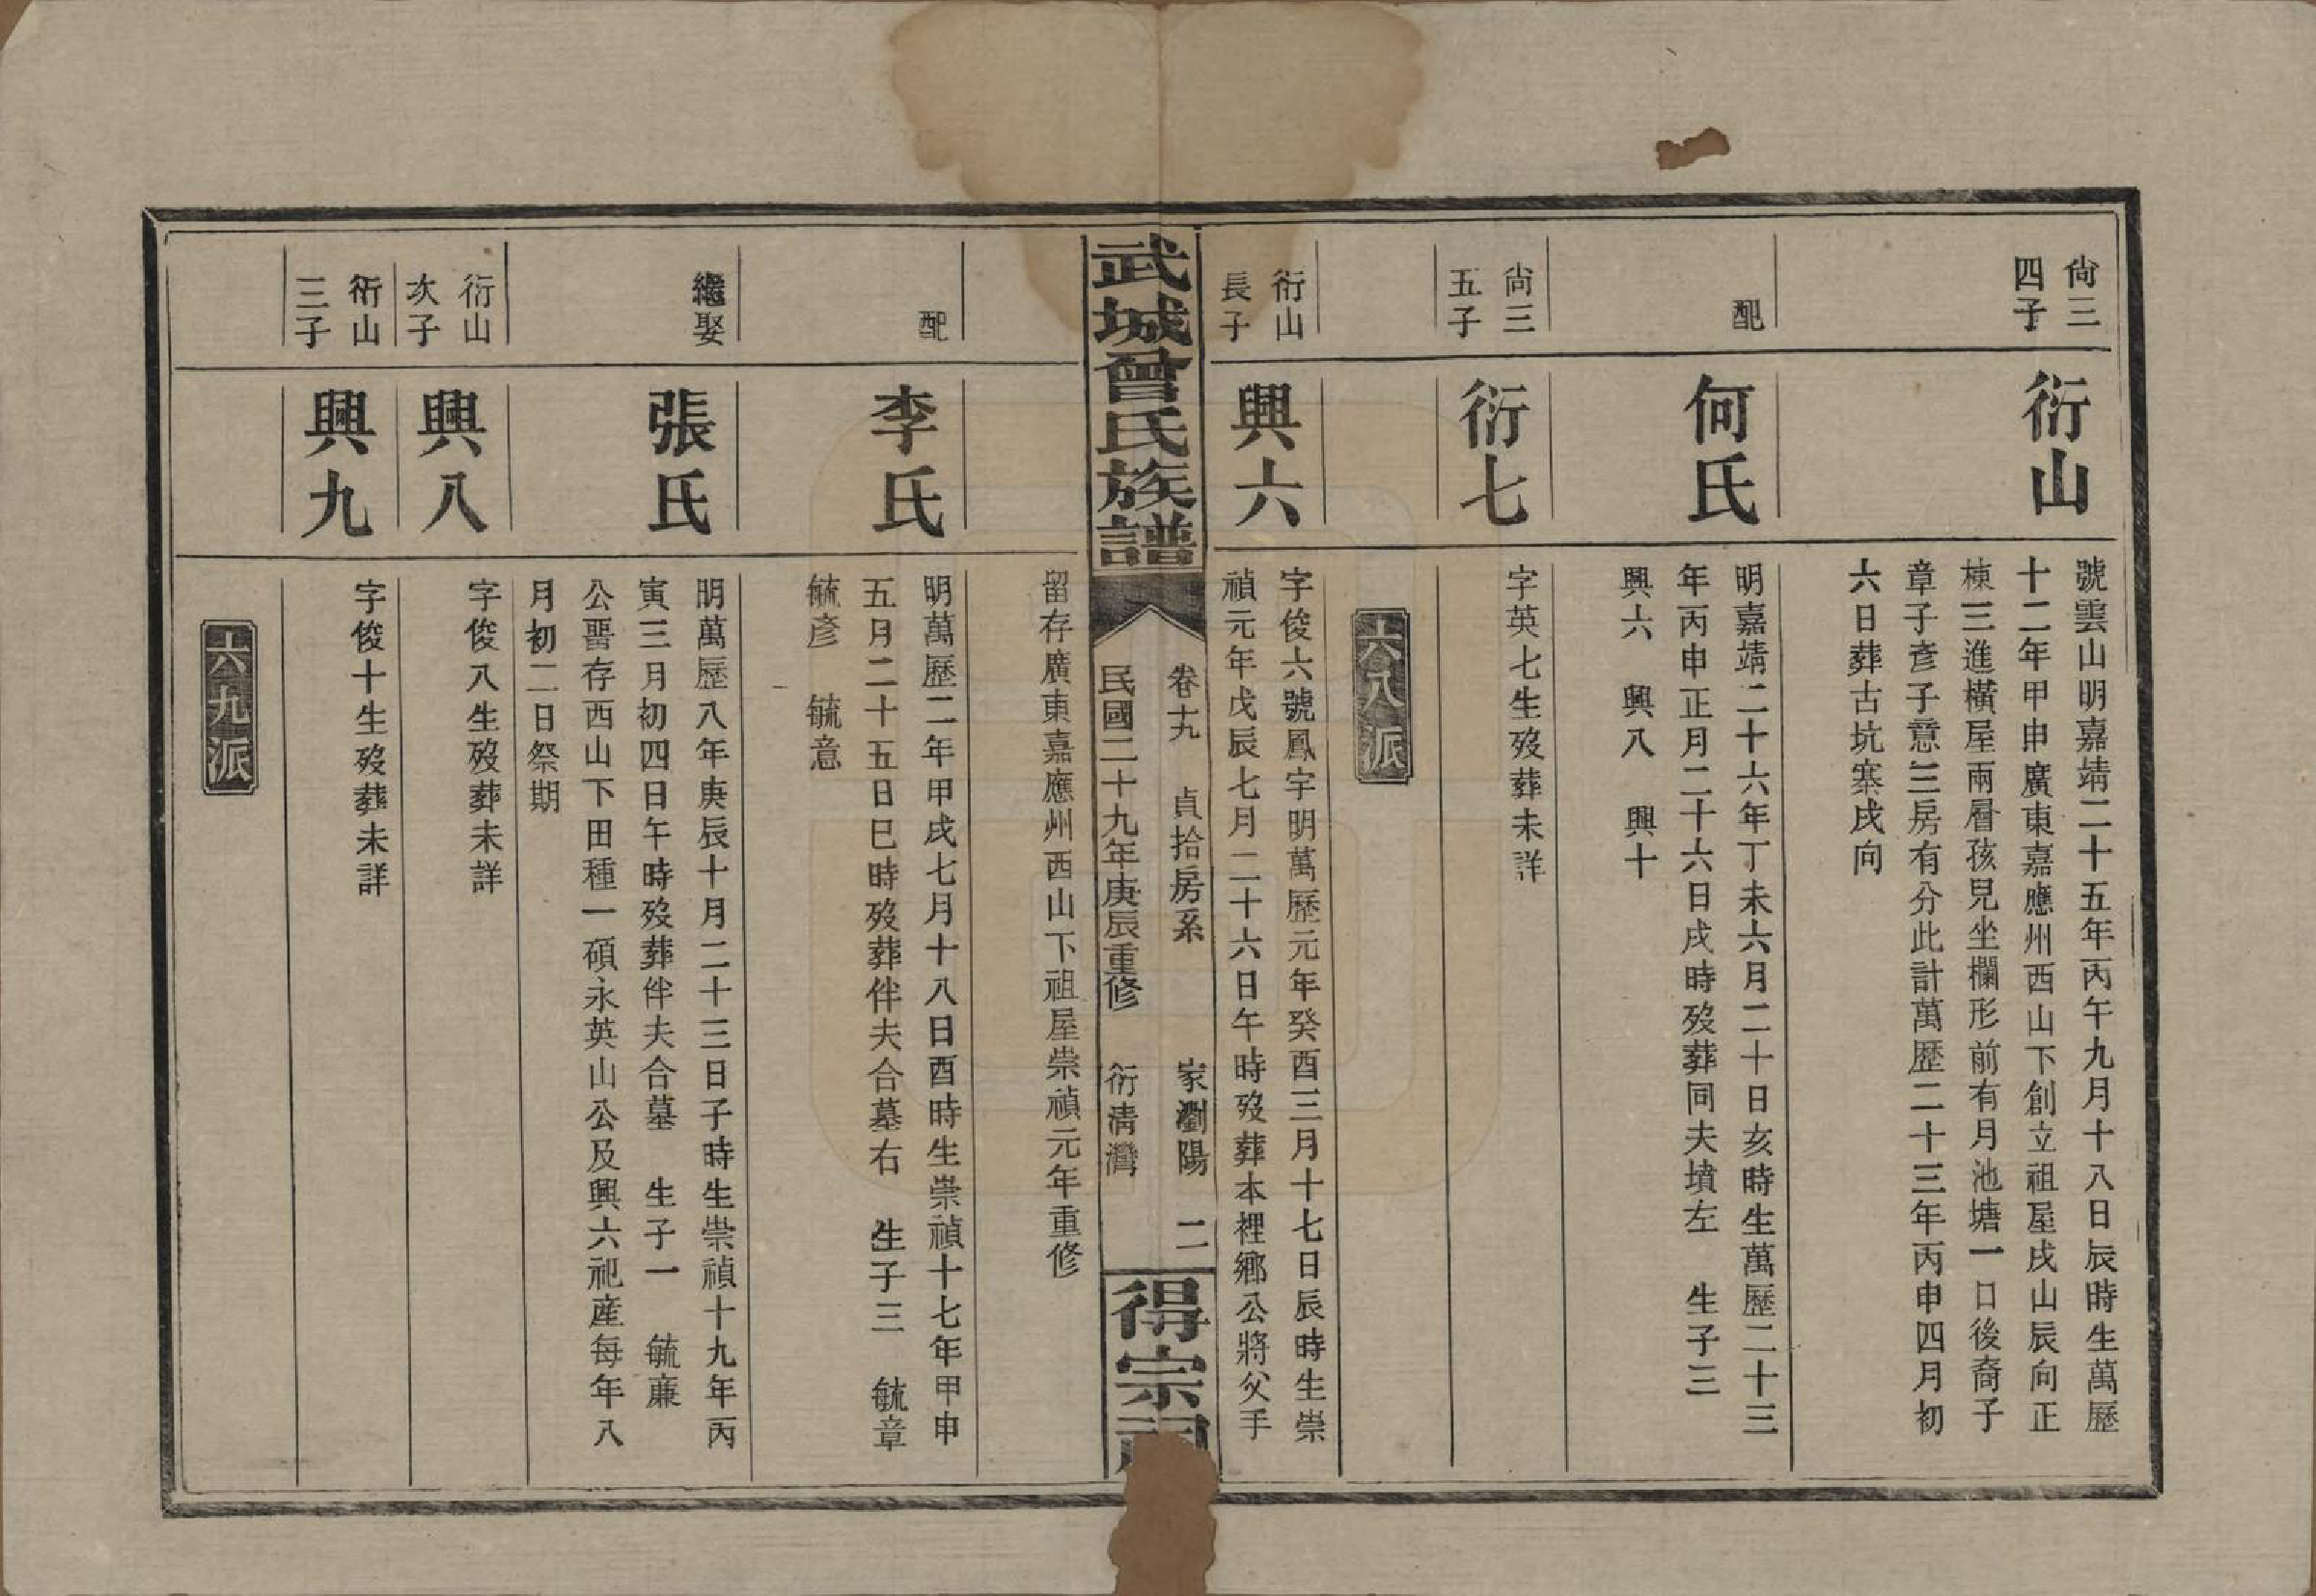 尙三
四子
衍山
號雲山明嘉靖二十五年丙午九月十八日辰時生萬歷
十二年甲申廣東嘉應州西山下創立祖屋戌山辰向正
棟三進橫屋兩層孩兒坐欄形前有月池塘一口後裔子
章子彥子意三房有分此計萬歷二十三年丙申四月初
六日葬古坑寨戌向
配
何氏
明嘉靖二十六年丁未六月二十日亥時生萬歷二十三
年丙申正月二十六日戌時歿葬同夫墳左 生子三
興六 興八 興十
尙三
五子
衍七
字英七生歿葬未詳
六八派
衍山
長子
興六
字俊六號鳳宇明萬歷元年癸酉三月十七日辰時生崇
禎元年戊辰七月二十六日午時歿葬本裡鄉公將父手
武城曾氏族譜
卷十九 貞拾房系 家瀏陽 二
民國二十九年庚辰重修 衍清灣
得宗祠
留存廣東嘉應州西山下祖屋崇禎元年重修
配
李氏
明萬歷二年甲戌七月十八日酉時生崇禎十七年甲申
五月二十五日巳時歿葬伴夫合墓右 生子三 毓章
毓彥 毓意
繼娶
張氏
明萬歷八年庚辰十月二十三日子時生崇禎十九年丙
寅三月初四日午時歿葬伴夫合墓 生子一 毓蔗
公嘗存西山下田種一碩永英山公及興六祀產每年八
月初二日祭期
衍山
次子
興八
字俊八生歿葬未詳
衍山
三子
興九
字俊十生歿葬未詳
六九派